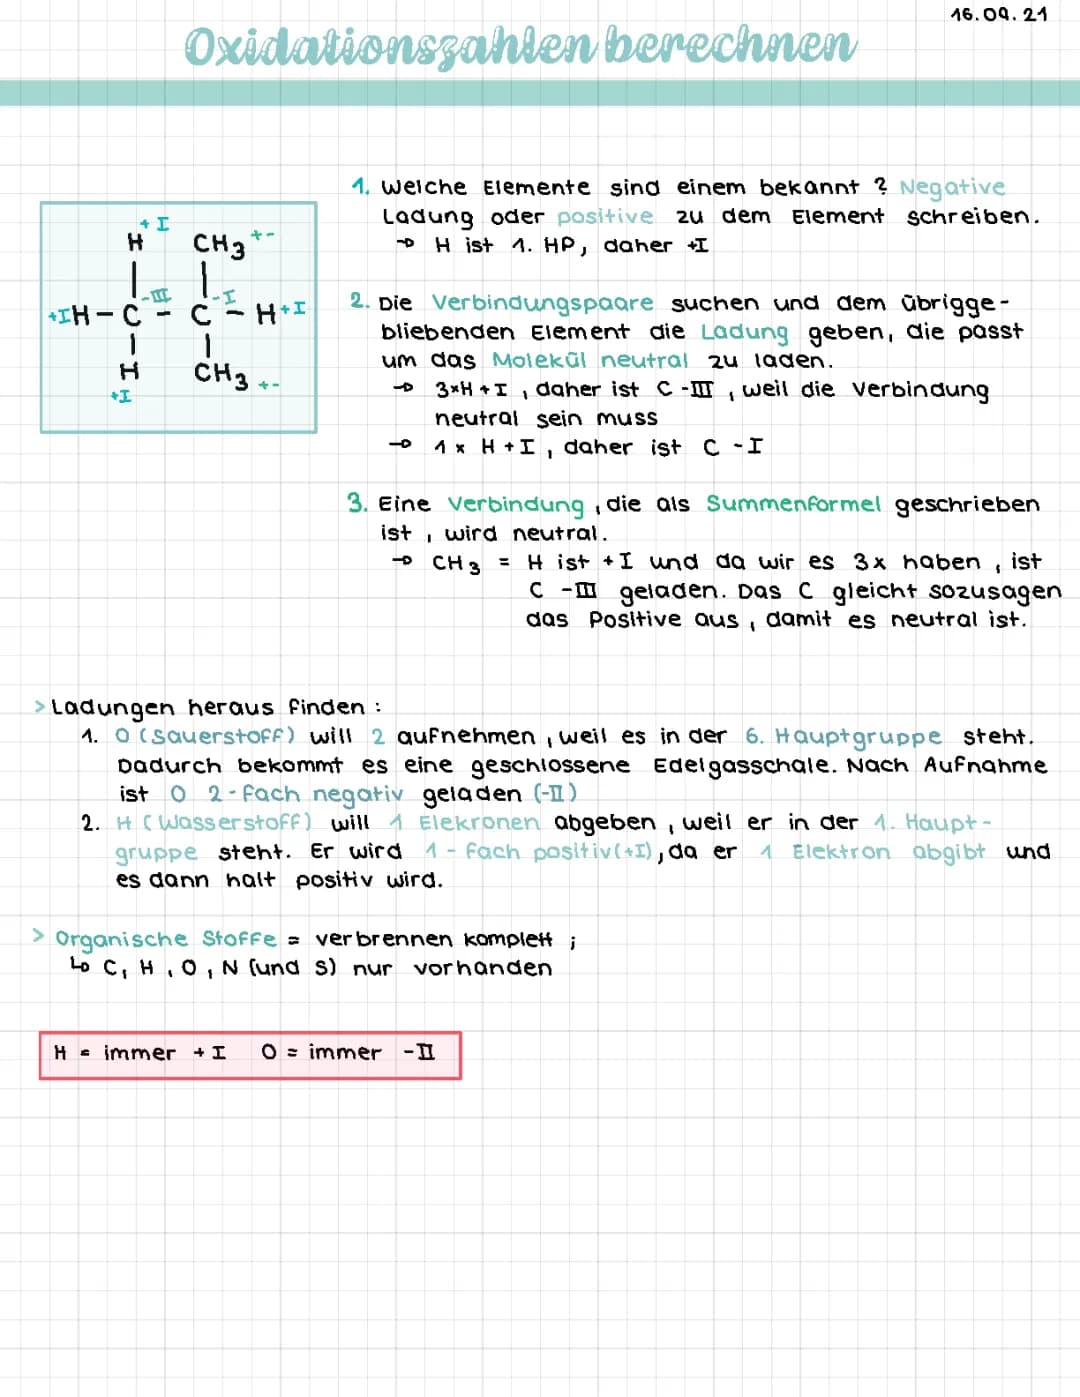 16.09.21
Oxidationszahlen berechnen
+I
H CH3 +-
-III -I
+I H - C - C - H +I
H CH3 +-
+I
1. Welche Elemente sind einem bekannt ? Negative
Ladung oder positive zu dem Element schreiben.
→ H ist 1. HP, daher +I
2. Die Verbindungspaare suchen und dem übrigge-
bliebenden Element die Ladung geben, die passt
um das Molekül neutral zu laden.
→ 3xH +I , daher ist C -III , weil die Verbindung
neutral sein muss
→ 1 x H +I , daher ist C -I
3. Eine Verbindung , die als Summenformel geschrieben
ist , wird neutral.
→ CH3 = H ist +I und da wir es 3x haben , ist
C -III geladen. Das C gleicht sozusagen
das Positive aus , damit es neutral ist.
> Ladungen heraus finden :
1. O (Sauerstoff) will 2 aufnehmen , weil es in der 6. Hauptgruppe steht.
Dadurch bekommt es eine geschlossene Edelgasschale. Nach Aufnahme
ist O 2-fach negativ geladen (-II)
2. H (Wasserstoff) will 1 Elekronen abgeben , weil er in der 1. Haupt-
gruppe steht. Er wird 1-fach positiv(+I), da er 1 Elektron abgibt und
es dann halt positiv wird.
> Organische Stoffe = verbrennen komplett ;
↳ C, H , O , N (und S) nur vorhanden
H = immer + I O = immer -II